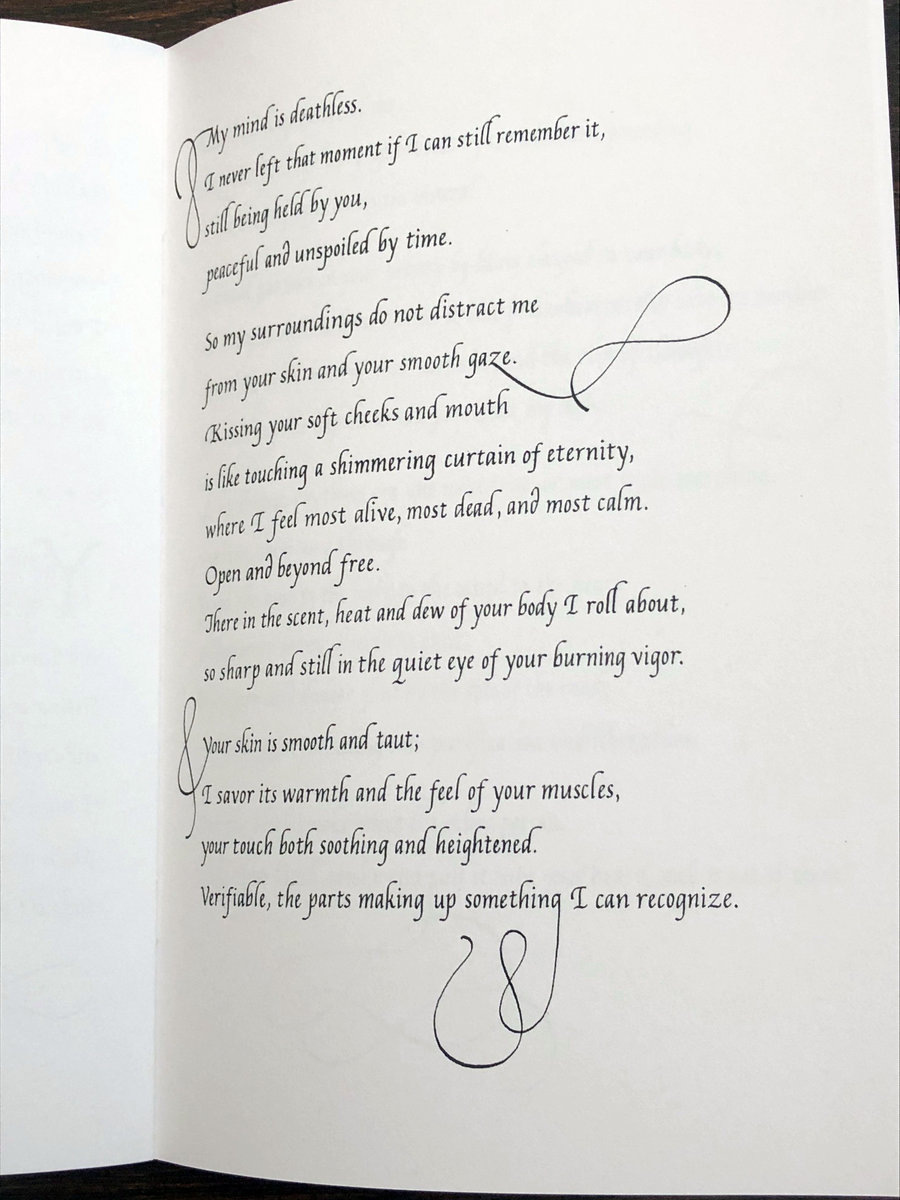 My mind is deathless.
I never left that moment if I can still remember it,
still being held by you,
peaceful and unspoiled by time.
So my surroundings do not distract me
from your skin and your smooth gaze.
Kissing your soft cheeks and mouth
is like touching a shimmering curtain of eternity,
where I feel most alive, most dead, and most calm.
Open and beyond free.
There in the scent, heat and dew of your body I roll about,
so sharp and still in the quiet eye of your burning vigor.
Your skin is smooth and taut;
I savor its warmth and the feel of your muscles,
your touch both soothing and heightened.
Verifiable, the parts making up something I can recognize.